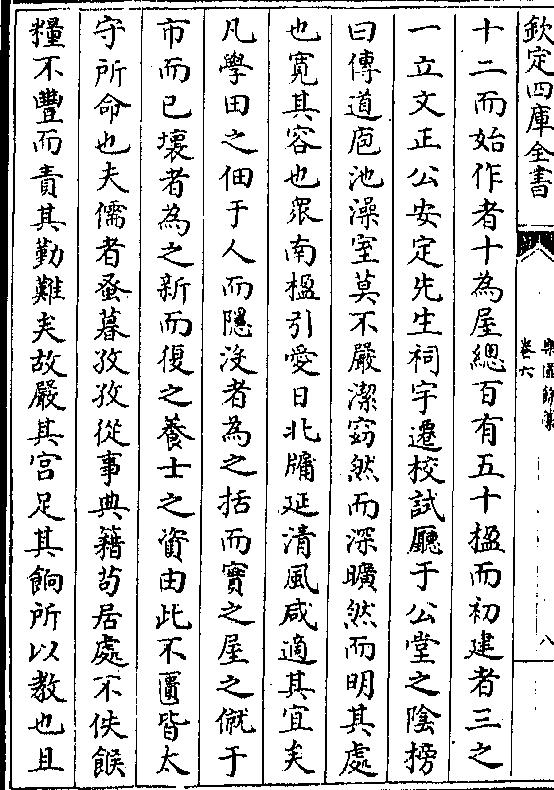 欽定四庫全書
樂圃餘藁
卷六
八
十二而始作者十為屋總百有五十楹而初建者三之
一立文正公安定先生祠宇遷校試廳于公堂之陰榜
曰傳道庖池澡室莫不嚴潔窈然而深曠然而明其處
也寛其容也衆南楹引愛日北牖延清風咸適其宜矣
凡學田之佃于人而隱没者為之括而實之屋之僦于
市而已壞者為之新而復之養士之資由此不匱皆太
守所命也夫儒者蚤暮孜孜從事典籍茍居處不佚餱
糧不豐而責其勤難矣故嚴其宫足其餉所以教也且